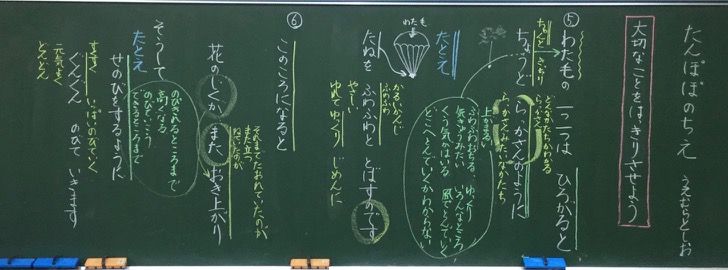 たんぽぽのちえ
うえむらとしお
大切なことをはっきりさせよう
⑤
わたもの 一つ一つは ひろがると
ちゃんと きっちり
どんなかたちかわかる
ちょうど らっかさんのように
らっかさんみたいなかたち
たとえ
ふわふわおちる ゆっくり
いろんなところ
くう気がはいる 風でとんでいく
どこへとんでいくかわからない
わたも
たねを ふわふわと とばすのです
かるいかんじ
ふわふわ
やさしい
ゆれてゆっくり じめんに
⑥
このころになると
それまでたおれていたのが
また立つ
ねていたのが
花のじくが また おき上がり
そうして
たとえ
のびきれるところまで
高くなる
のびていこう
できるところまで
せのびをするように
ぐんぐん のびて いきます
すすく いっぱいのびていく
元気よく
どんどん